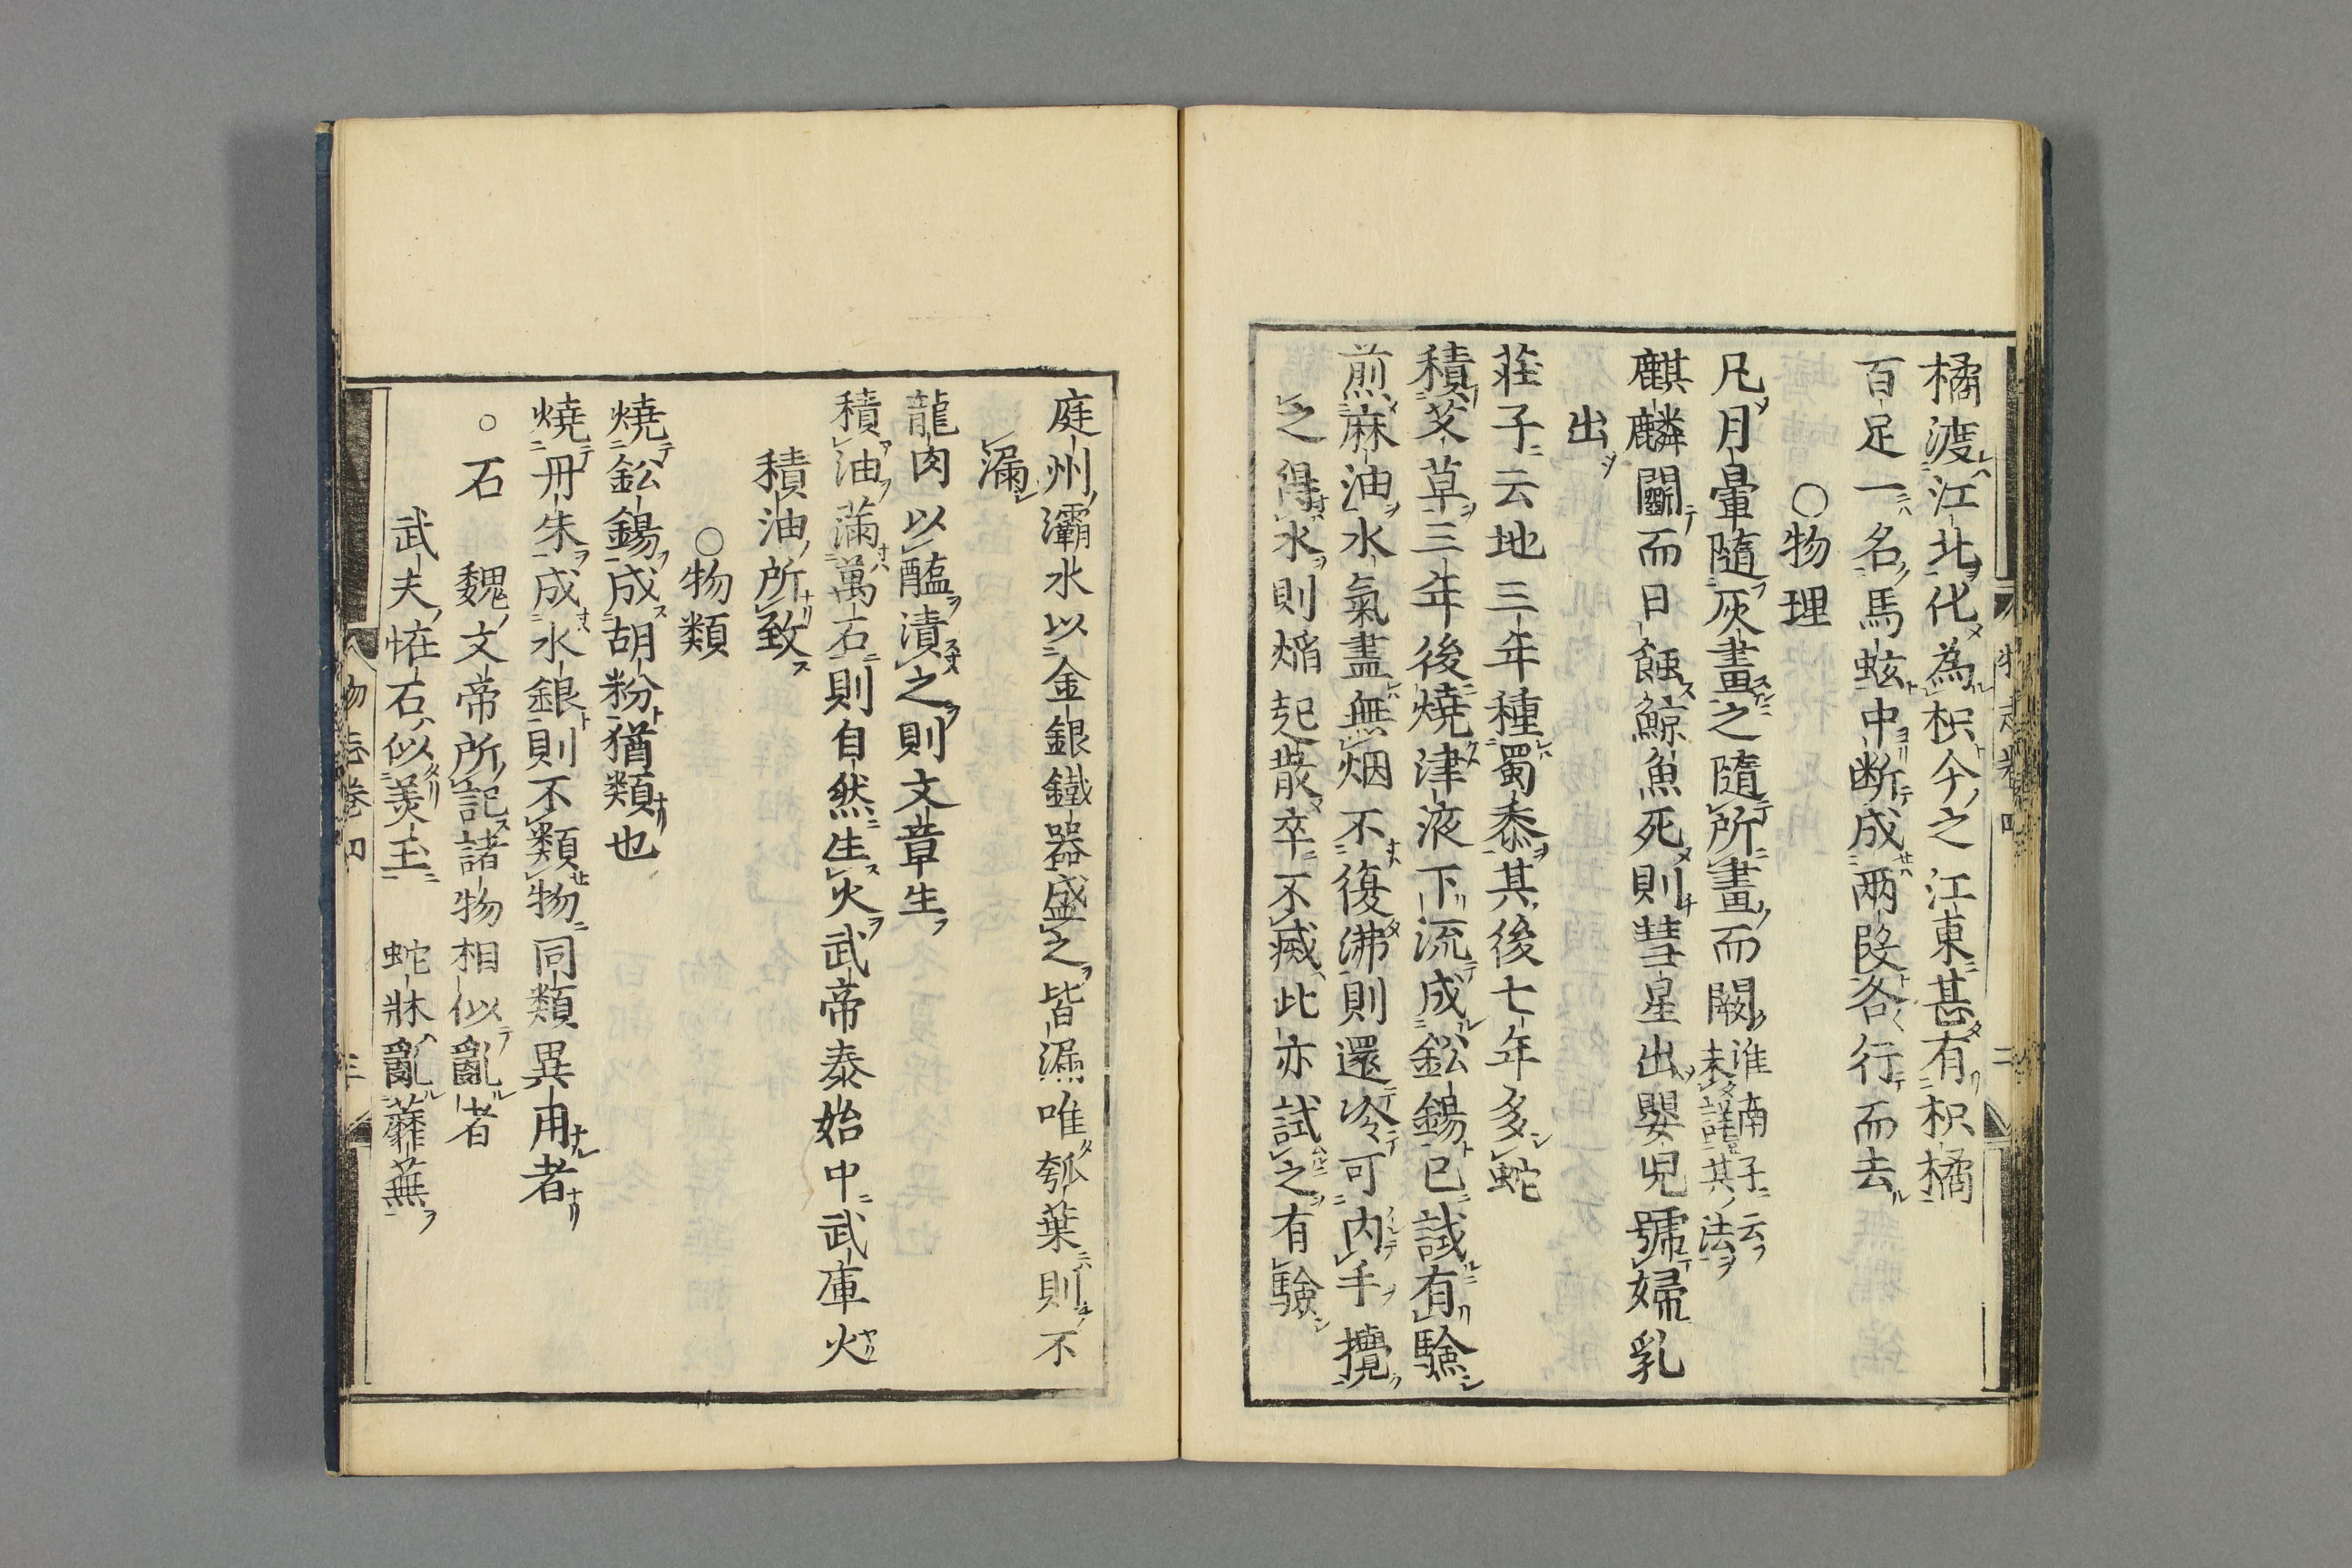 橘渡江北化為枳今之江東甚有枳橘
百足一名馬蚿中断成兩段各行而去
○物理
凡月暈隨灰畫之隨所畫而闕淮南子云未詳其法
麒麟鬭而日蝕鯨魚死則彗星出嬰兒號婦乳
出
莊子云地三年種蜀黍其後七年多蛇
積艾草三年後燒津液下流成鈆錫已試有驗
煎麻油水氣盡無烟不復沸則還冷可内手攪
之得水則焰起散卒不滅此亦試之有驗
庭州灞水以金銀鐵器盛之皆漏唯瓠葉則不
漏
龍肉以醢漬之則文章生
積油滿萬石則自然生火武帝泰始中武庫火
積油所致
○物類
燒鈆錫成胡粉猶類也
燒丹朱成水銀則不類物同類異用者
○石 魏文帝所記諸物相似亂者
武夫恠石似美玉 蛇牀亂蘼蕪
物志卷四